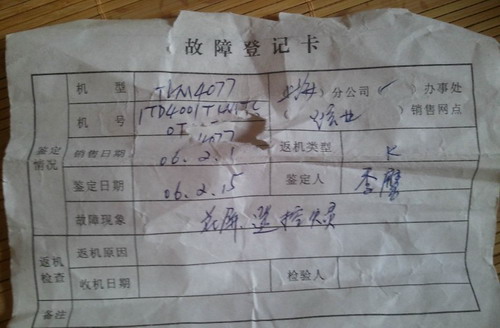 故障登记卡
机型 TLM4077 上海 分公司 ✓ 办事处
机号 销售网点
4077
鉴定情况 销售日期 06.2.1 返机类型 K
鉴定日期 06.2.15 鉴定人 李
故障现象 花屏
返机检查 返机原因
收机日期 检验人
备注